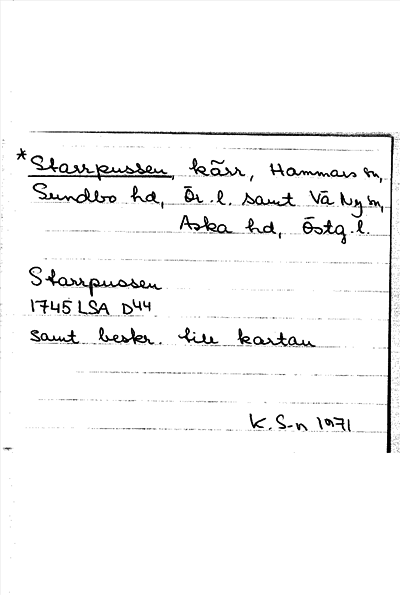 *Starrpussen, kärr, Hammars sn,
Sundbo hd, Ör.l. samt Vä Ny sn,
Aska hd, Östg.l.
Starrpussen
1745 LSA D44
samt beskr. till kartan
K. S-n 1971